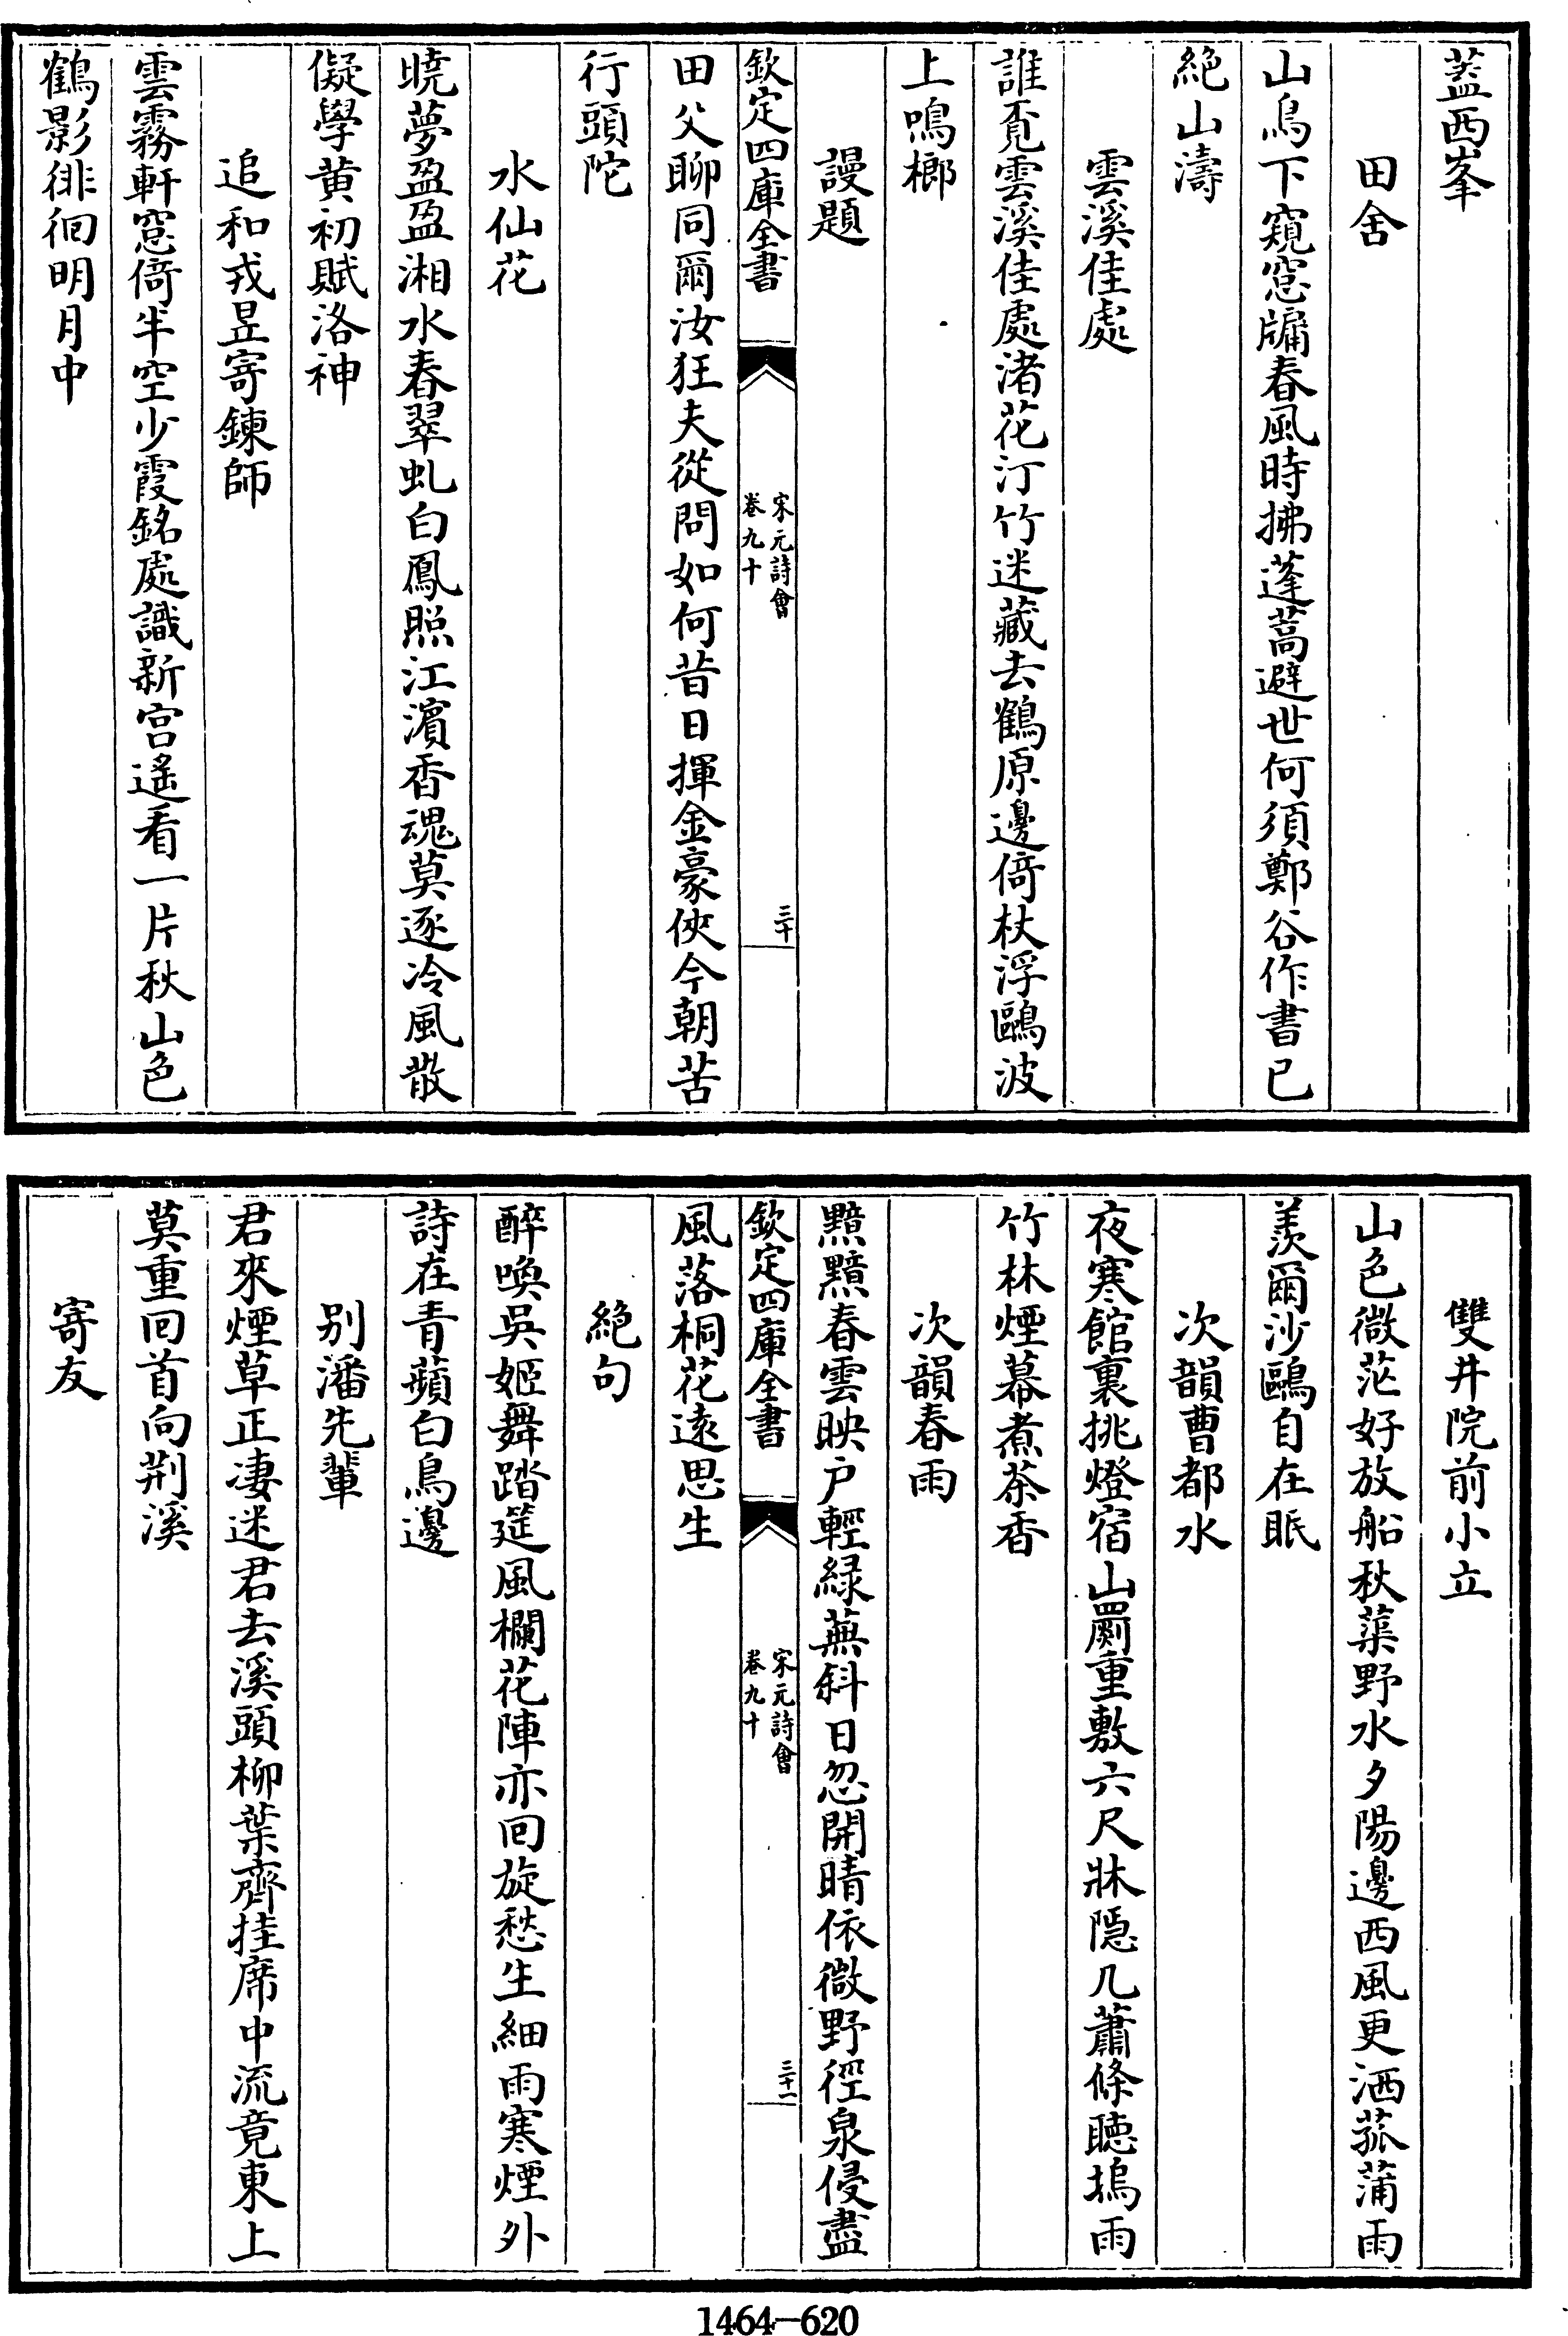 葢西峯
田舍
山鳥下窺窓牖春風時拂蓬蒿避世何須鄭谷作書已
絶山濤
雲溪佳處
誰覔雲溪佳處渚花汀竹迷藏去鶴原邊倚杖浮鷗波
上鳴榔
謾題
欽定四庫全書
宋元詩會
卷九十
三十
田父聊同爾汝狂夫從問如何昔日揮金豪俠今朝苦
行頭陀
水仙花
曉夢盈盈湘水春翠虬白鳳照江濱香魂莫逐冷風散
儗學黄初賦洛神
追和戎昱寄鍊師
雲霧軒窓倚半空少霞銘處識新宫遥看一片秋山色
鶴影徘徊明月中
雙井院前小立
山色微茫好放船秋蕖野水夕陽邊西風更洒菰蒲雨
羨爾沙鷗自在眠
次韻曹都水
夜寒館裏挑燈宿山罽重敷六尺牀隠几蕭條聴塢雨
竹林煙幕煮茶香
次韻春雨
黯黯春雲映户輕緑蕪斜日忽開晴依微野徑泉侵盡
欽定四庫全書
宋元詩會
卷九十
三十一
風落桐花遠思生
絶句
醉喚吳姬舞踏筵風欄花陣亦回旋愁生細雨寒煙外
詩在青蘋白鳥邊
别潘先輩
君來煙草正凄迷君去溪頭柳葉齊挂席中流竟東上
莫重回首向荆溪
寄友
1464-620